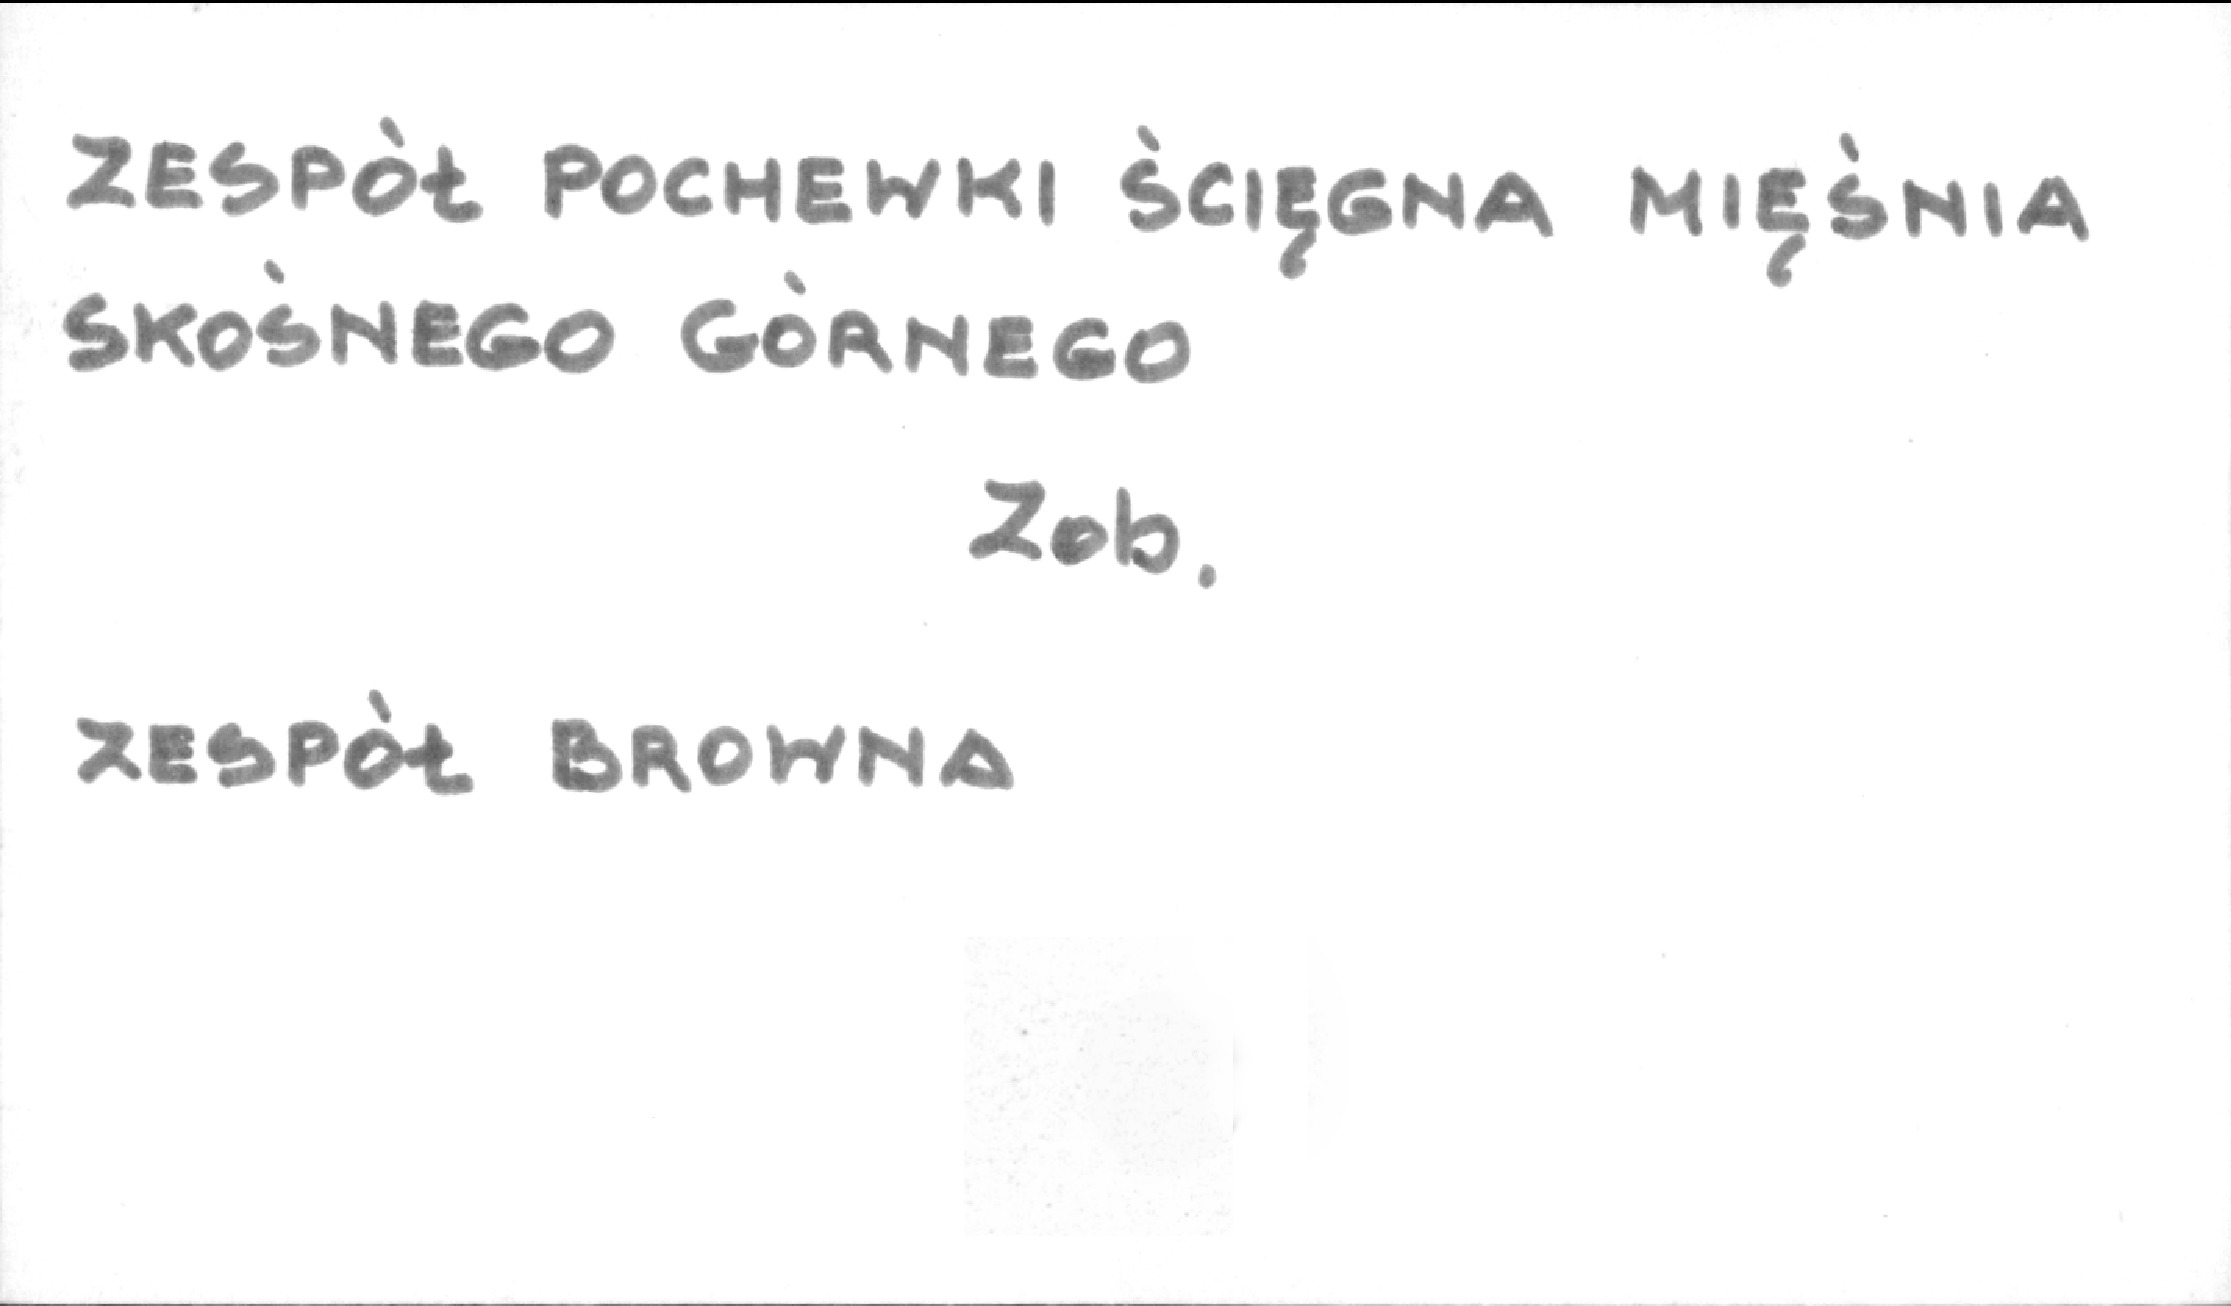 ZESPÓŁ POCHEWKI ŚCIĘGNA MIĘŚNIA
SKOŚNEGO GÓRNEGO
Zob.
ZESPÓŁ BROWNA